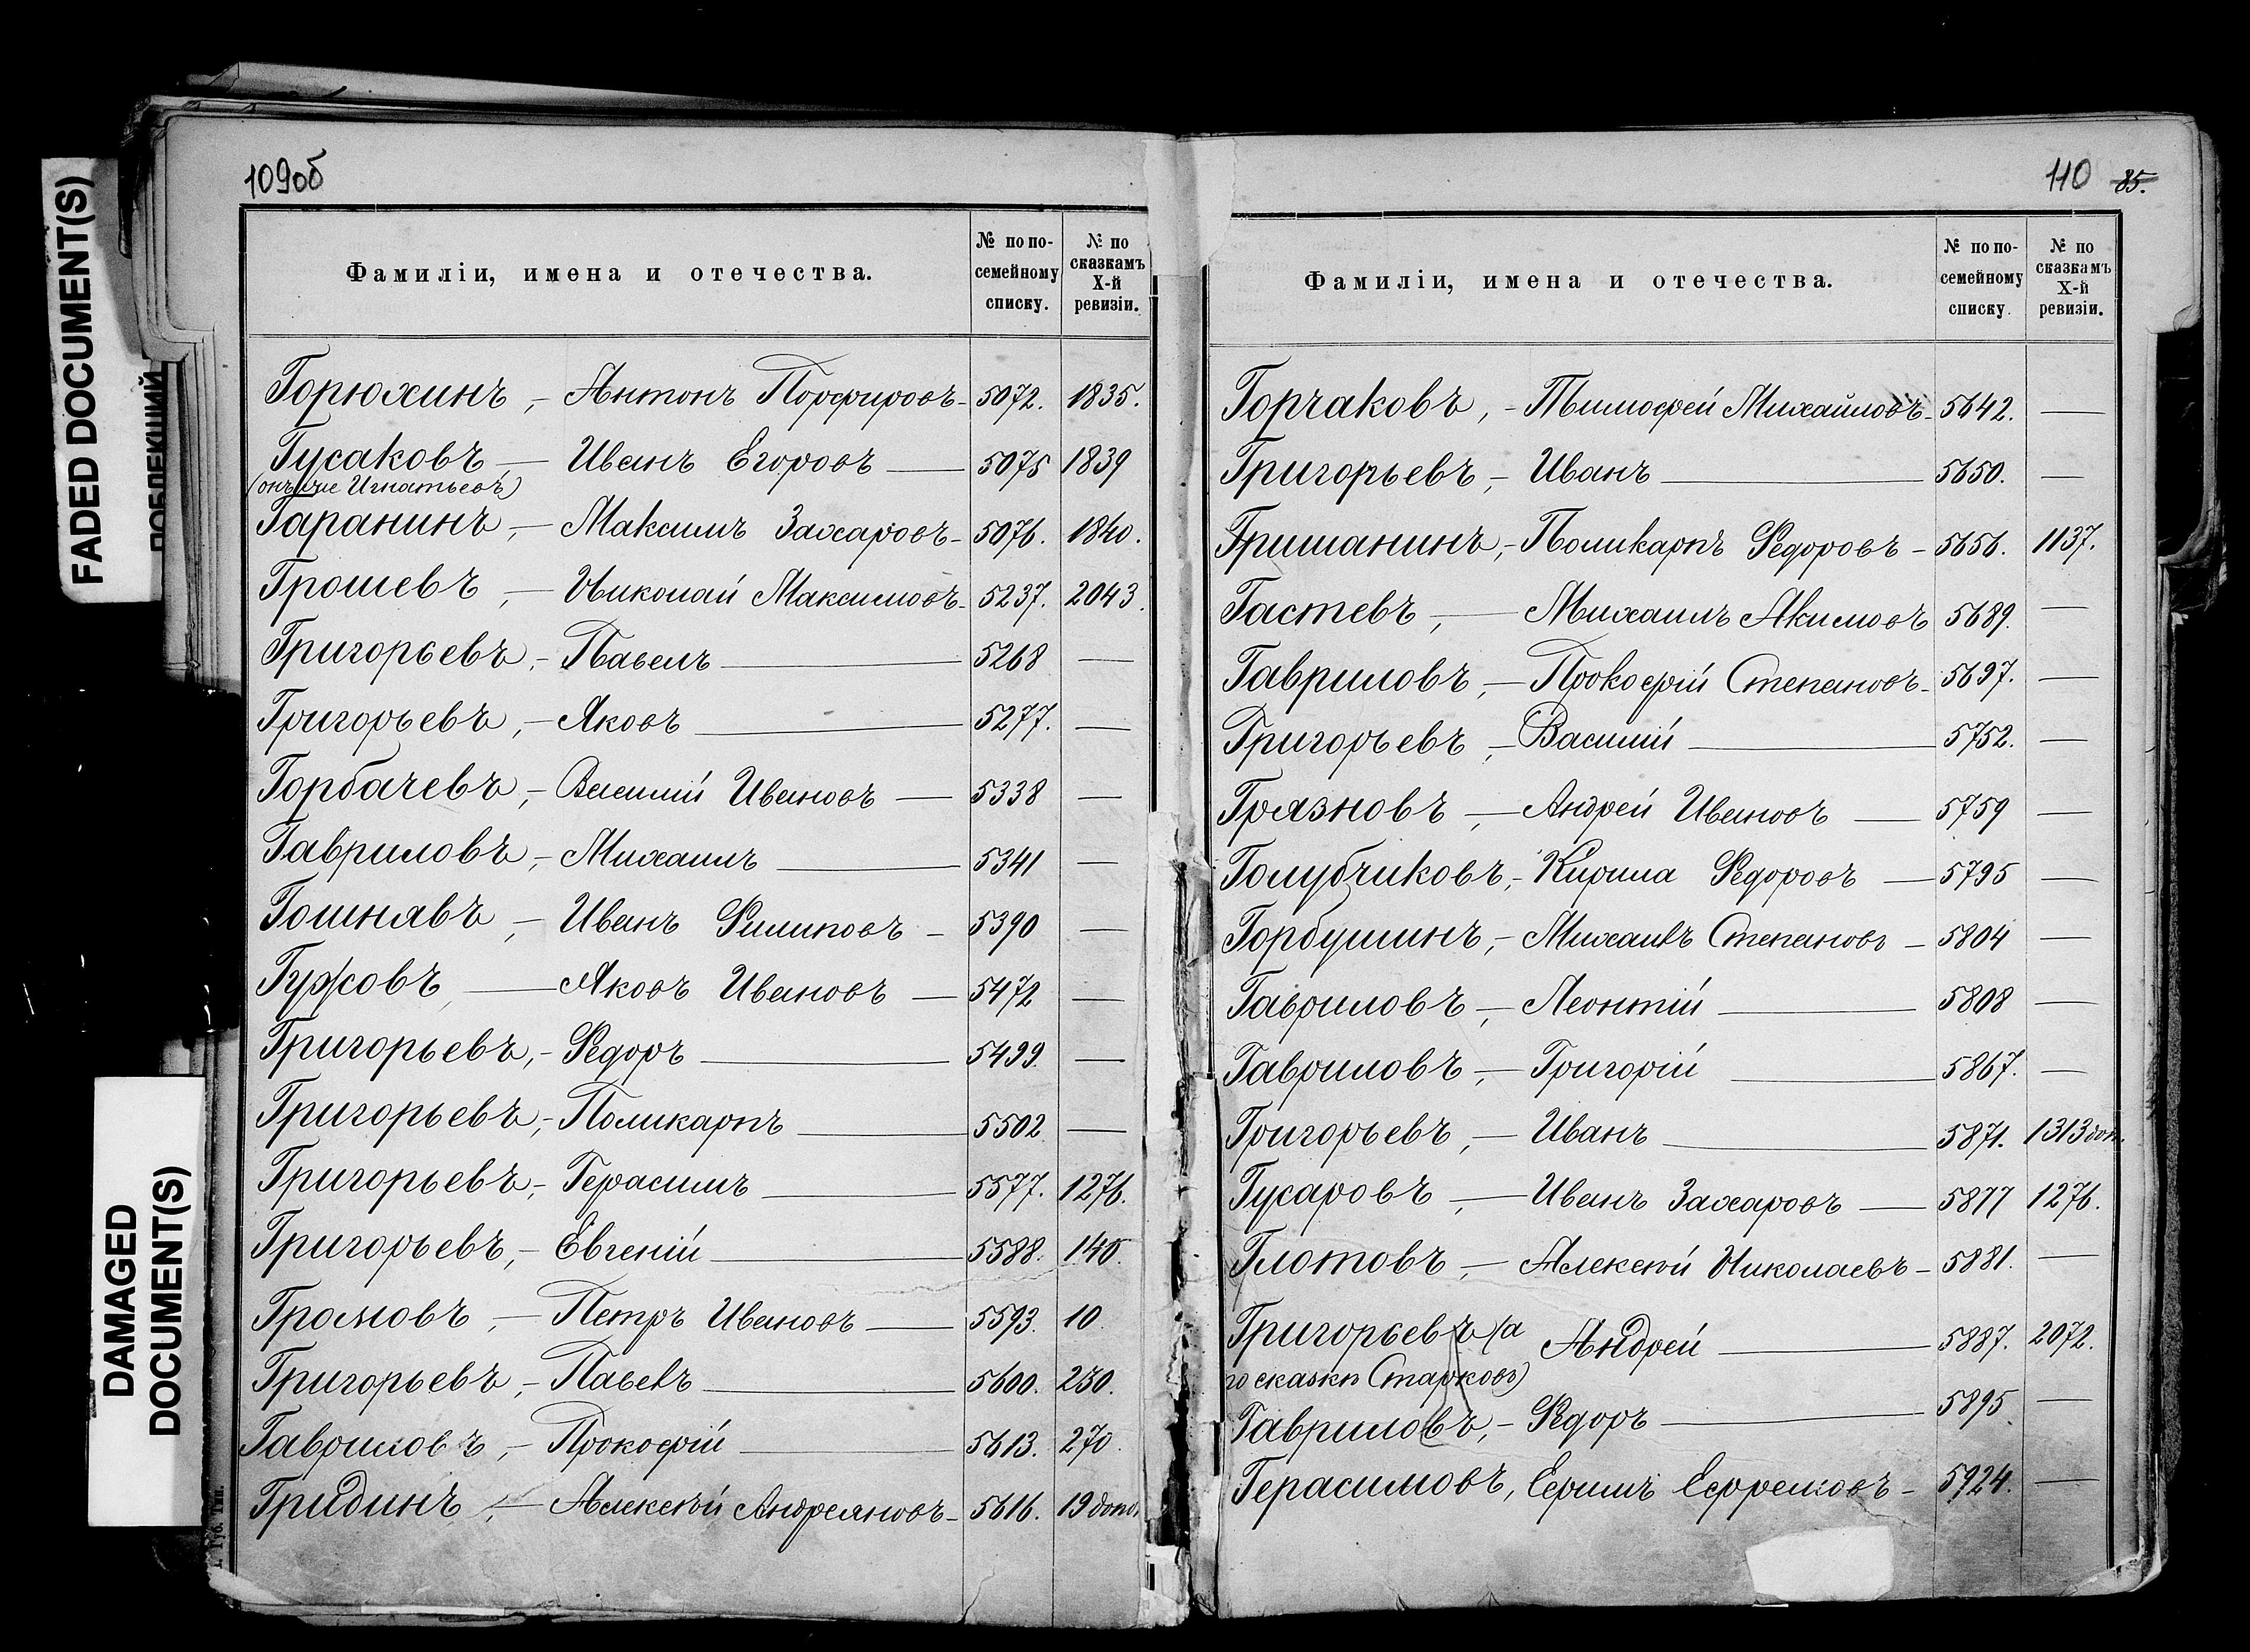 FADED DOCUMENT(S)
DAMAGED
DOCUMENT(S)
109об
Фамиліи, имена и отечества.
№ по по-
семейному
списку.
№ по
сказкамъ
X-й
ревизіи.
Горюхинъ, - Антонъ Порфировъ - 5072. 1835.
Гусаковъ — Иванъ Егоровъ — 5075 1839
(онъ же Игнатьевъ)
Таранинъ, — Максимъ Захаровъ - 5076. 1840.
Грошевъ, — Николай Максимовъ - 5237. 2043.
Григорьевъ, - Павелъ — 5268 —
Григорьевъ, - Яковъ — 5277. —
Горбачевъ, - Василий Ивановъ — 5338 —
Гавриловъ, - Михаилъ — 5341 —
Гошнявъ, - Иванъ Филиповъ - 5390 —
Гужовъ, — Яковъ Ивановъ — 5472 —
Григорьевъ, - Ѳедоръ — 5499. —
Григорьевъ, - Поликарпъ — 5502 —
Григорьевъ, - Герасимъ — 5577. 1276.
Григорьевъ, - Евгеній — 5588. 140.
Громовъ, — Петръ Ивановъ — 5593. 10
Григорьевъ, - Павелъ — 5600. 230.
Гавриловъ, - Прокофій — 5613. 270.
Гридинъ, — Алексѣй Андреяновъ - 5616. 19 допол
110 85.
Фамиліи, имена и отечества.
№ по по-
семейному
списку.
№ по
сказкамъ
X-й
ревизіи.
Горчаковъ, - Тимофей Михайловъ - 5642. —
Григорьевъ, - Иванъ — 5650. —
Гришанинъ, - Поликарпъ Ѳедоровъ - 5656. 1137.
Гастевъ, — Михаилъ Акимовъ 5689. —
Гавриловъ, — Прокофій Степановъ - 5697. —
Григорьевъ, - Василий — 5752. —
Грязновъ, — Андрей Ивановъ — 5759 —
Голубчиковъ, - Кирила Ѳедоровъ — 5795 —
Горбушинъ, - Михаилъ Степановъ - 5804 —
Гавриловъ, - Леонтій — 5808 —
Гавриловъ, - Григорій — 5867. —
Григорьевъ, - Иванъ — 5871. 1313 доп.
Гусаровъ, — Иванъ Захаровъ — 5877 1276.
Глотовъ, — Алексѣй Николаевъ - 5881. —
Григорьевъ (а Андрей — 5887. 2072.
по сказкѣ Старковъ)
Гавриловъ, - Ѳедоръ — 5895. —
Герасимовъ, Ефимъ Ефремовъ - 5924. —